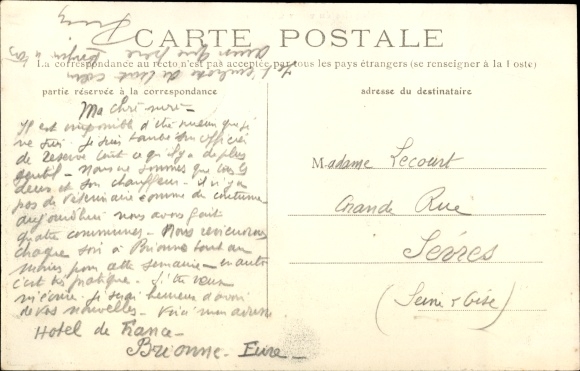 CARTE POSTALE
La correspondance au recto n'est pas acceptée par tous les pays étrangers (se renseigner à la Poste)
partie réservée à la correspondance
adresse du destinataire
Ma chère mère -
Il est impossible d'être mieux que je
ne suis. Je suis tombé sur officier
de réserve tout ce qu'il y a de plus
gentil - Nous ne sommes que tous les
deux et son chauffeur - il n'y a
pas de vétérinaire comme de coutume
aujourd'hui nous avons fait
quatre communes - Nous reviendrons
chaque soir à Brionne tout au
moins pour cette semaine - en auto
c'est très pratique - Si tu veux
m'écrire. Je serai heureux d'avoir
de vos nouvelles - Voici mon adresse
Hotel de France -
Brionne - Eure -
Je t'embrasse de tout cœur
ainsi que père
Madame Lecourt
Grande Rue
Sèvres
(Seine & Oise)